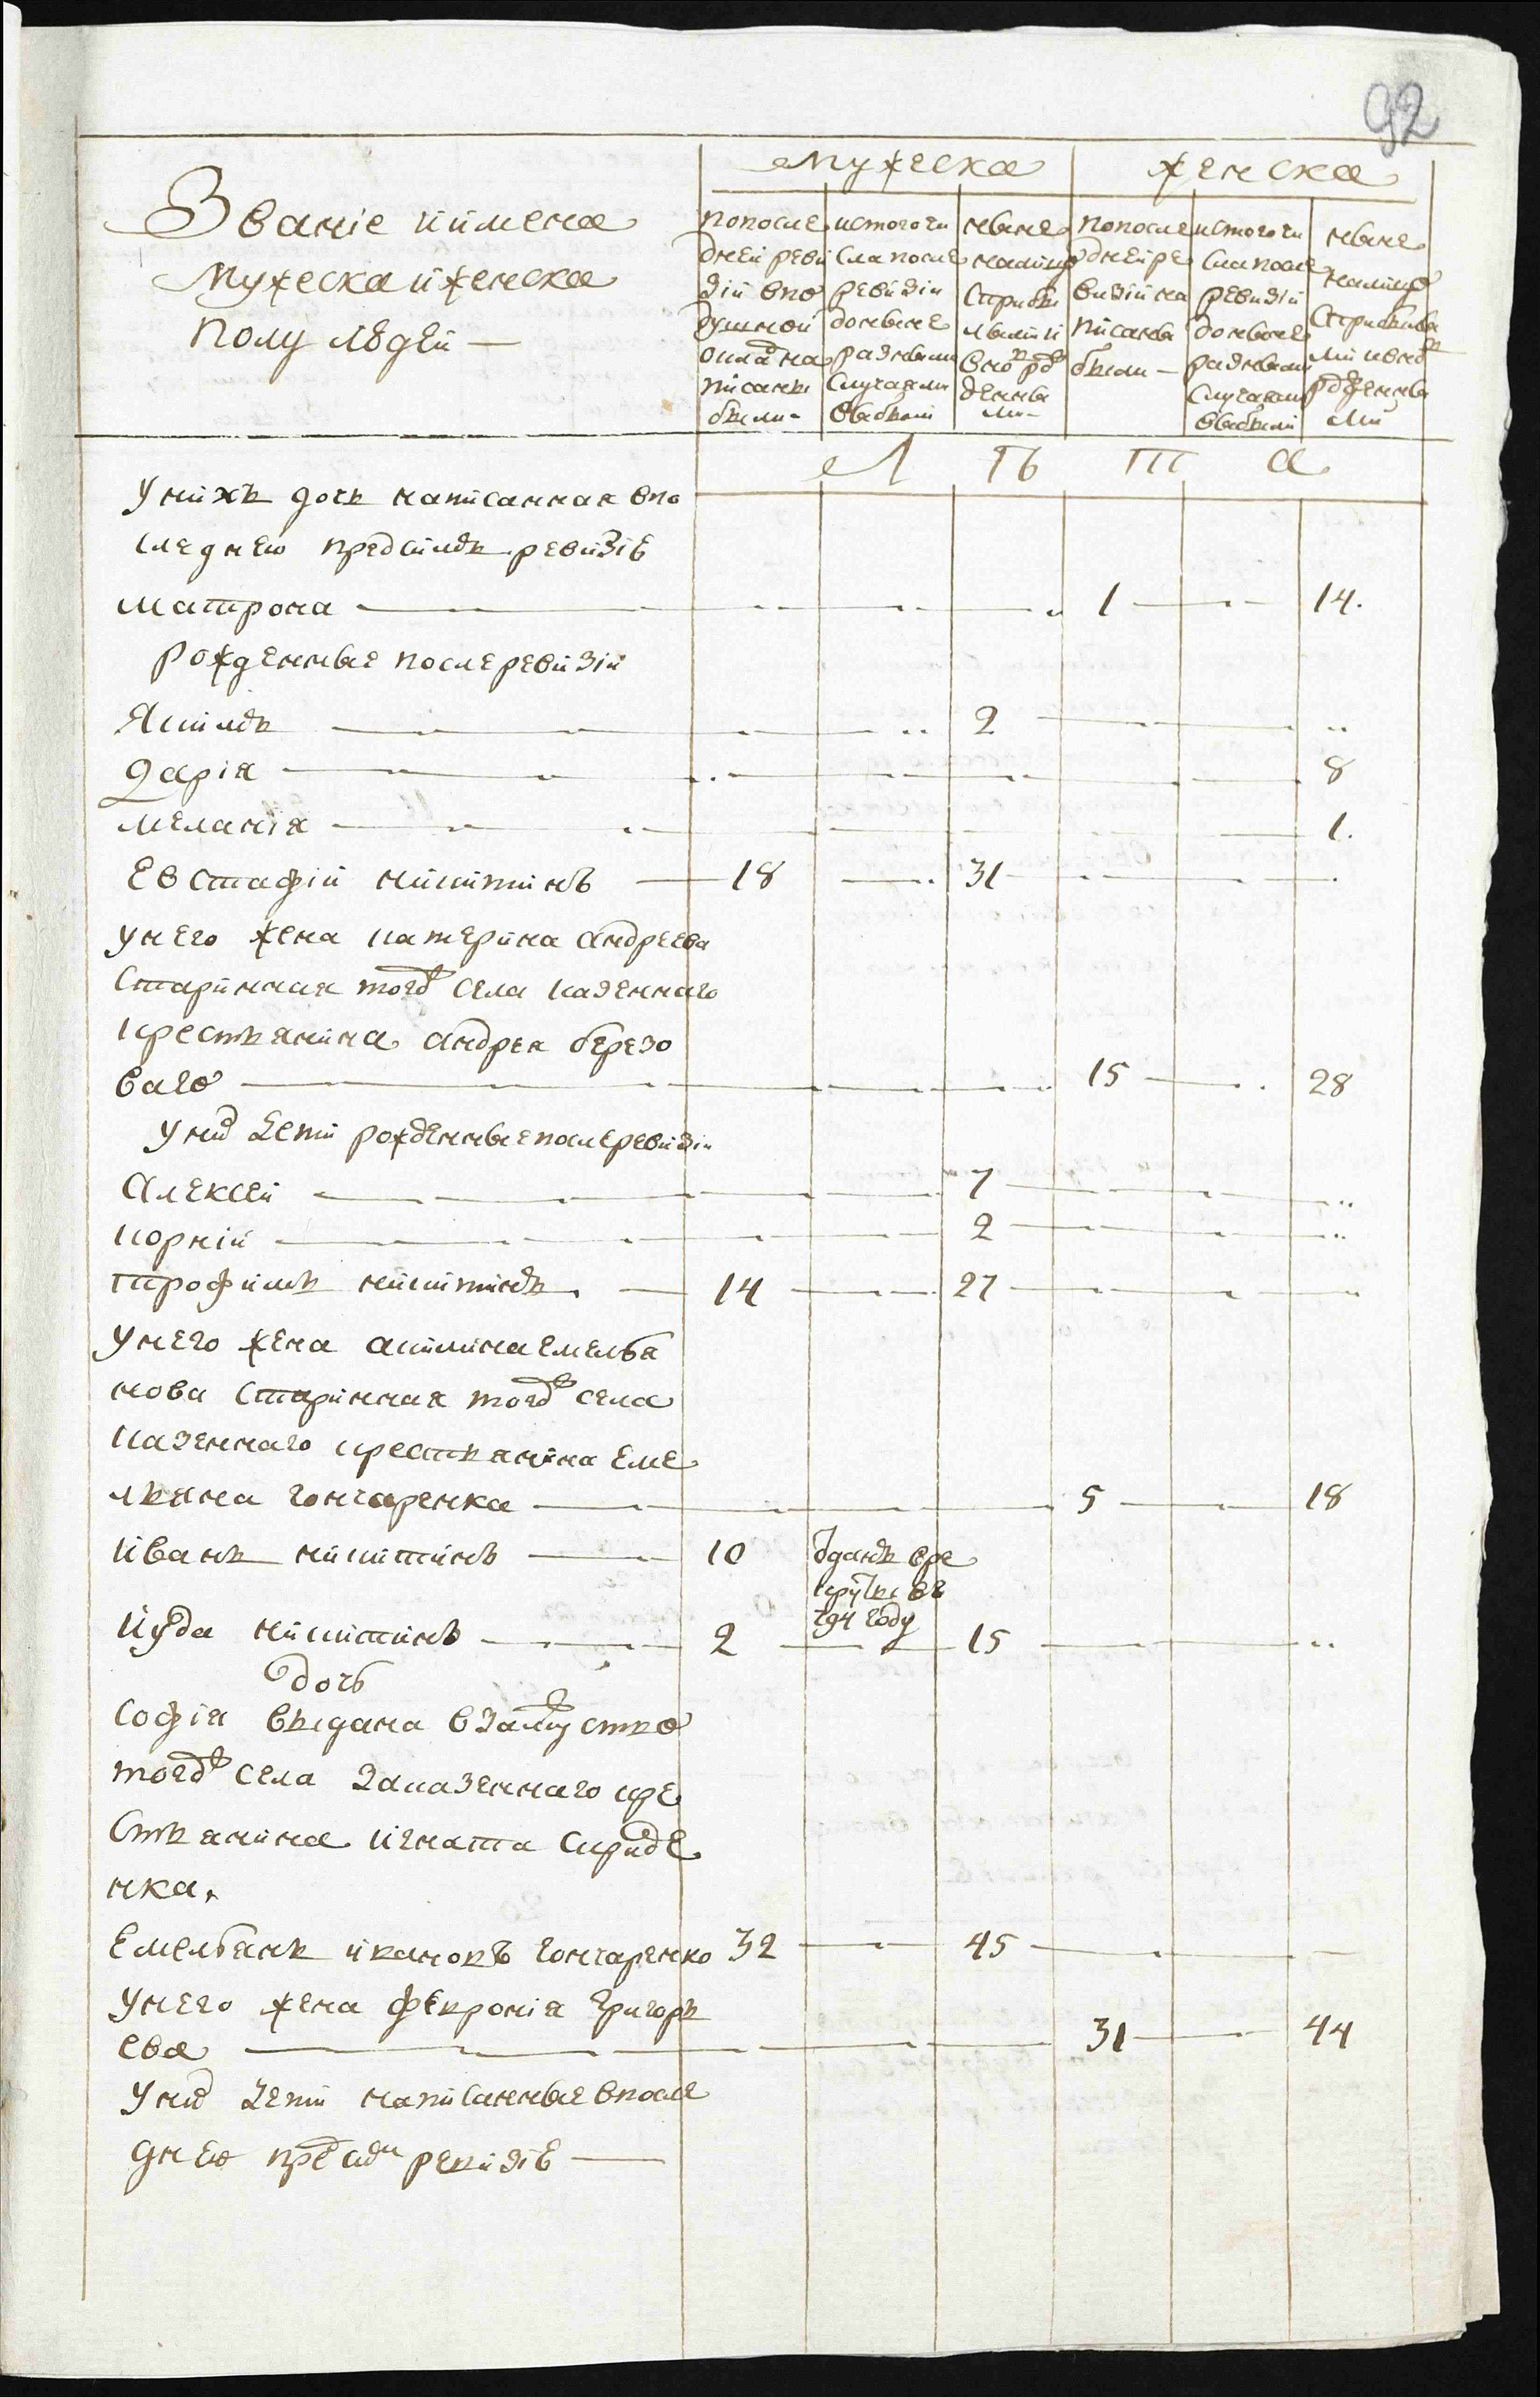 92
Званіе иимена
Мужеска иженска
полу людей —
Мужеска
Женска
попосле
дней реви
зіи впо
душной
окла на
писаны
были -
истогочи
сла после
ревизіи
донѣне
разными
случаями
выбыли
нѣне
налицо
сприбы
лыми и
вно ро
денны
ми -
попосле
дней ре
визіи на
писаны
были —
истогочи
сла после
ревизіи
донѣне
разными
случаями
выбыли
нѣне
налицо
сприбылы
ми ивно
рожденны
ми
Л Ѣ Т А
унихъ дочь написанная впо
следнею предсимъ ревизіе
матрона 1 14.
рожденные после ревизіи
Якимъ 2
Дарія 8
меланія 1.
Евстафій никитинъ 18 31
унего жена катерина андреева
старинная тогож села казеннаго
крестьянина андрея березо
ваго 15 28
уних дети рожденные послеревизіи
Алексей 7
корній 2
трофимъ никитинъ 14 27
унего жена акилина емелья
нова старинная тогож села
казеннаго крестьянина еме
льяна гончаренка 5 18
Иванъ никитинъ 10 отданъ вре
круты въ
794 году
Иуда никитинъ 2 15
дочь
софія выдана взамужство
тогож села заказеннаго кре
стьянина игната спириде
нка.
Емельянъ ивановъ гончаренко 32 45
унего жена февронія григорь
ева 31 44
уних дети написанные впосле
днею пред сим ревизіе —